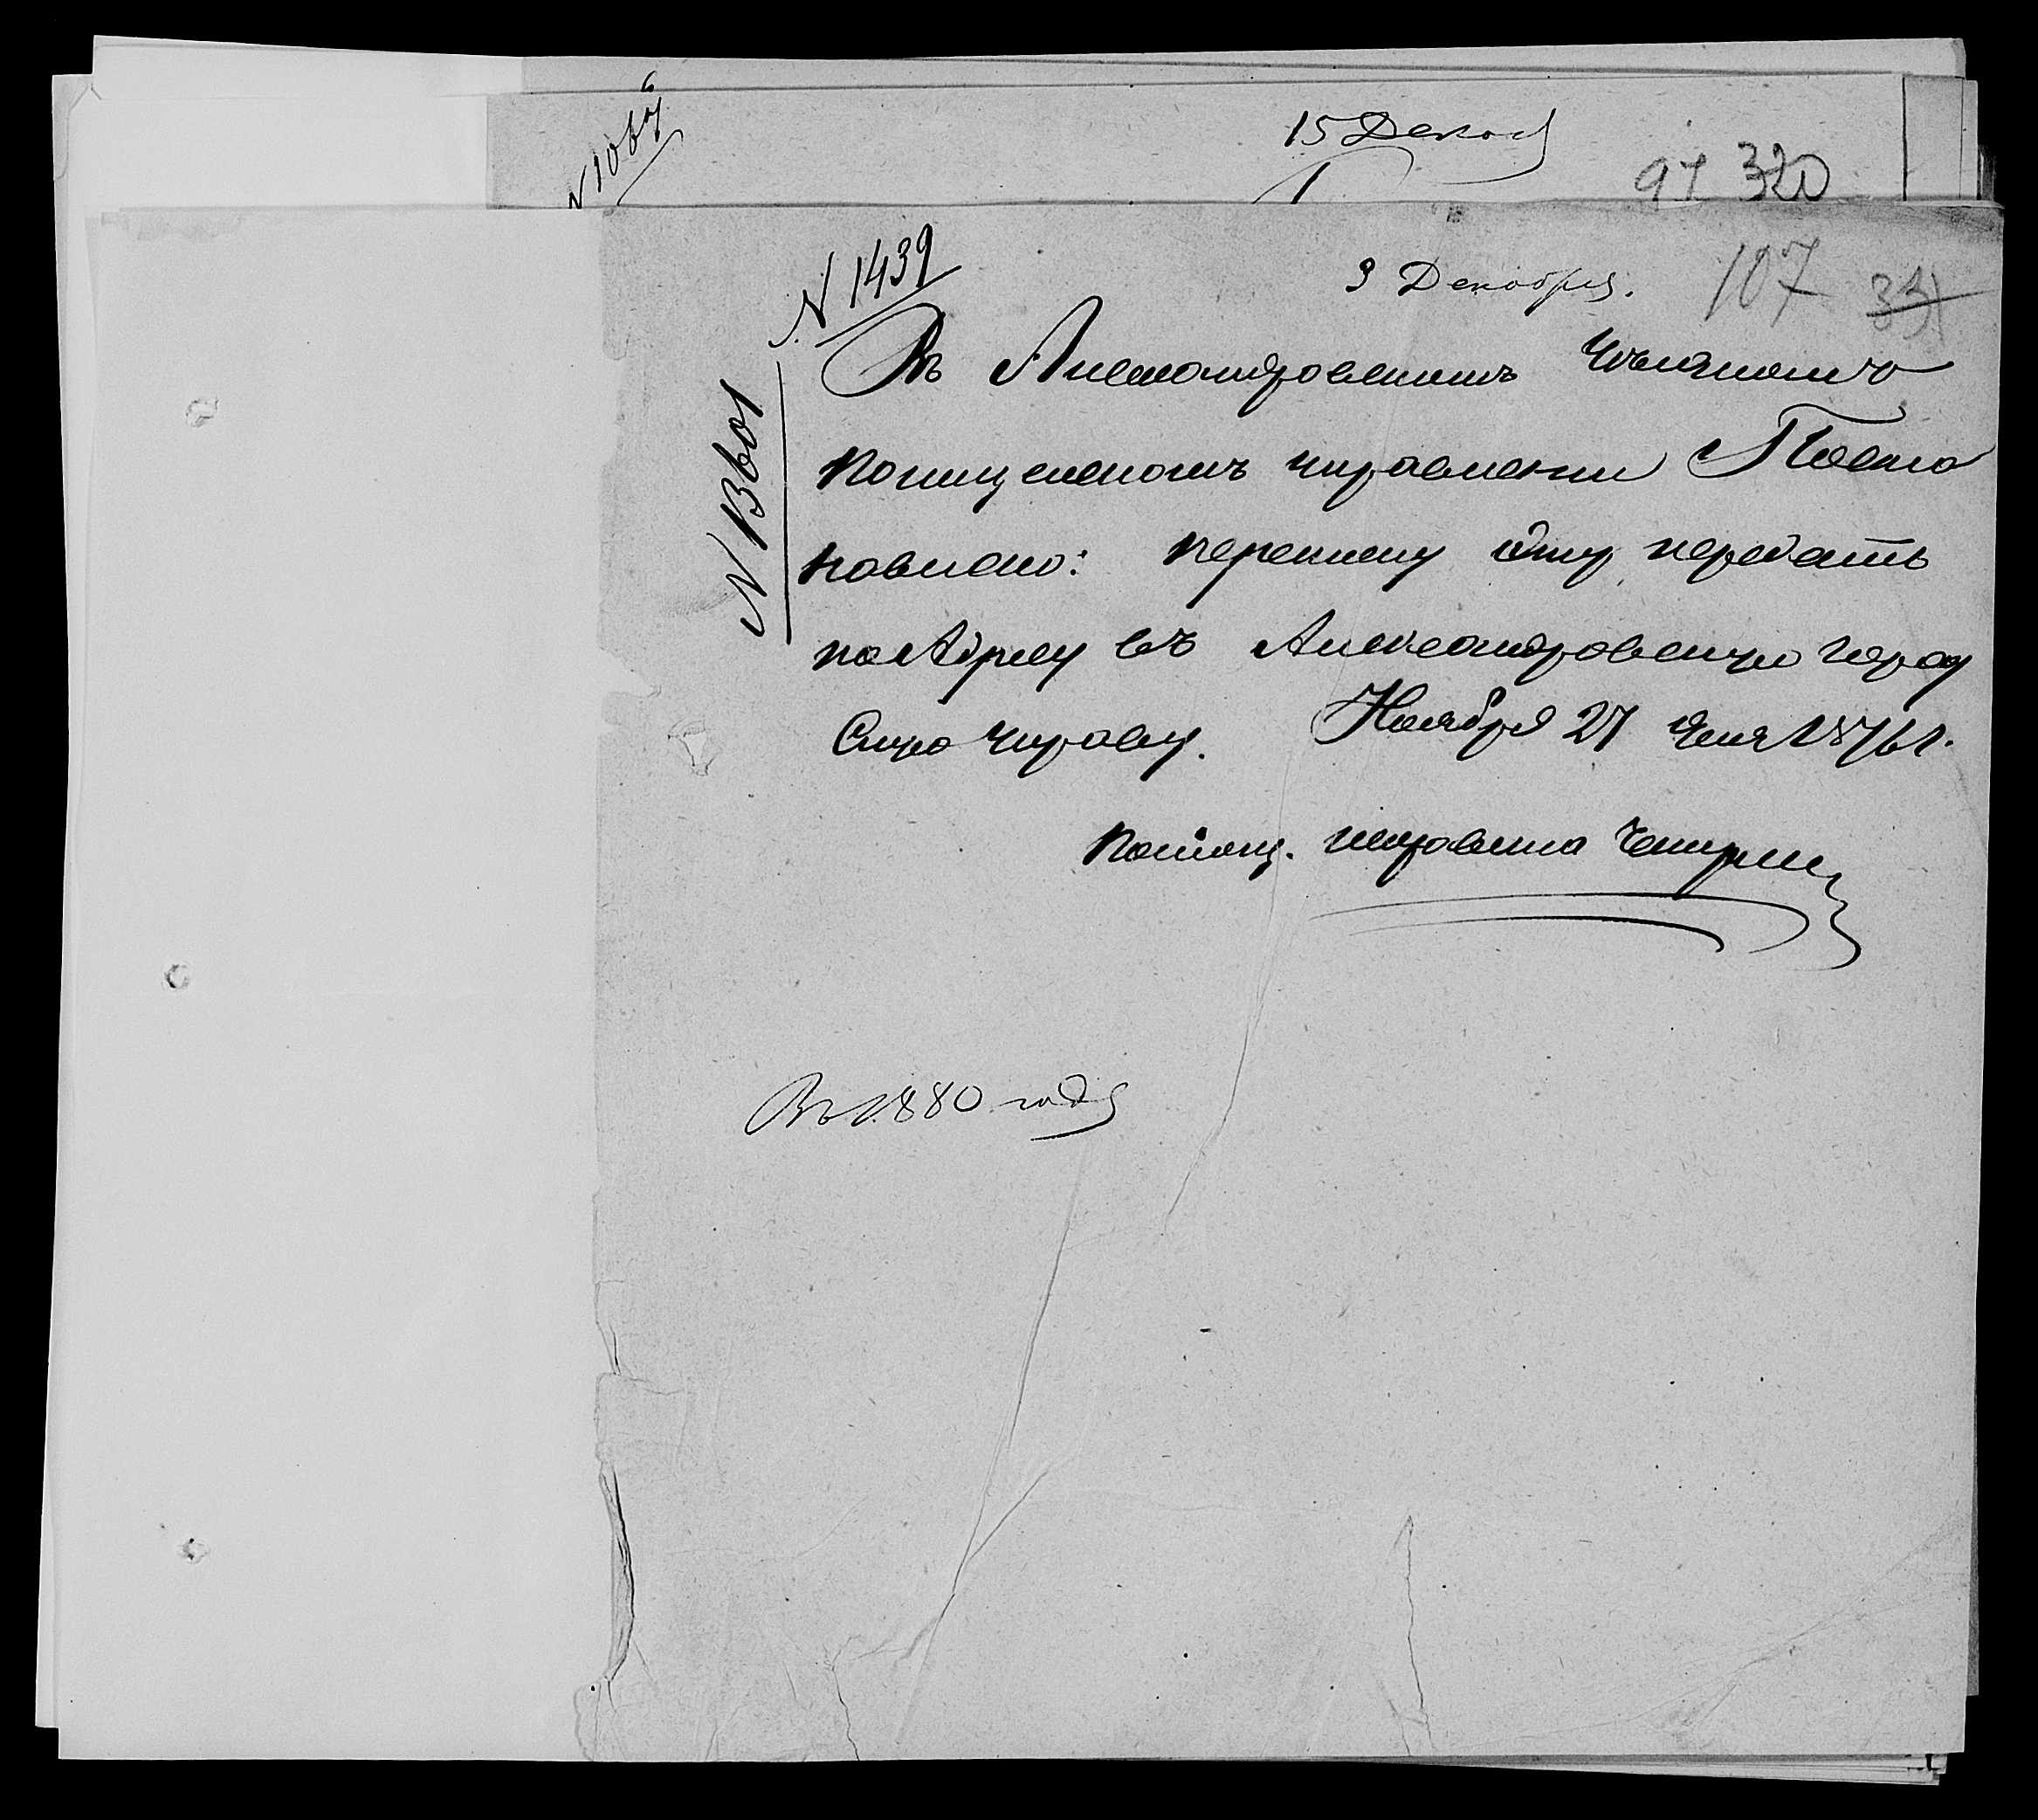 N 1064
15 Декаб
97 320
N 1439
3 Декабря.
107 34
N 13601
Въ Александровскомъ Уѣздномъ
полицейскомъ управленіи Поста
новлено: переписку эту передать
по Адресу въ Александровскую город
скую управу. Ноября 27 дня 1876 г.
Помощ. исправника
Въ 1880 году